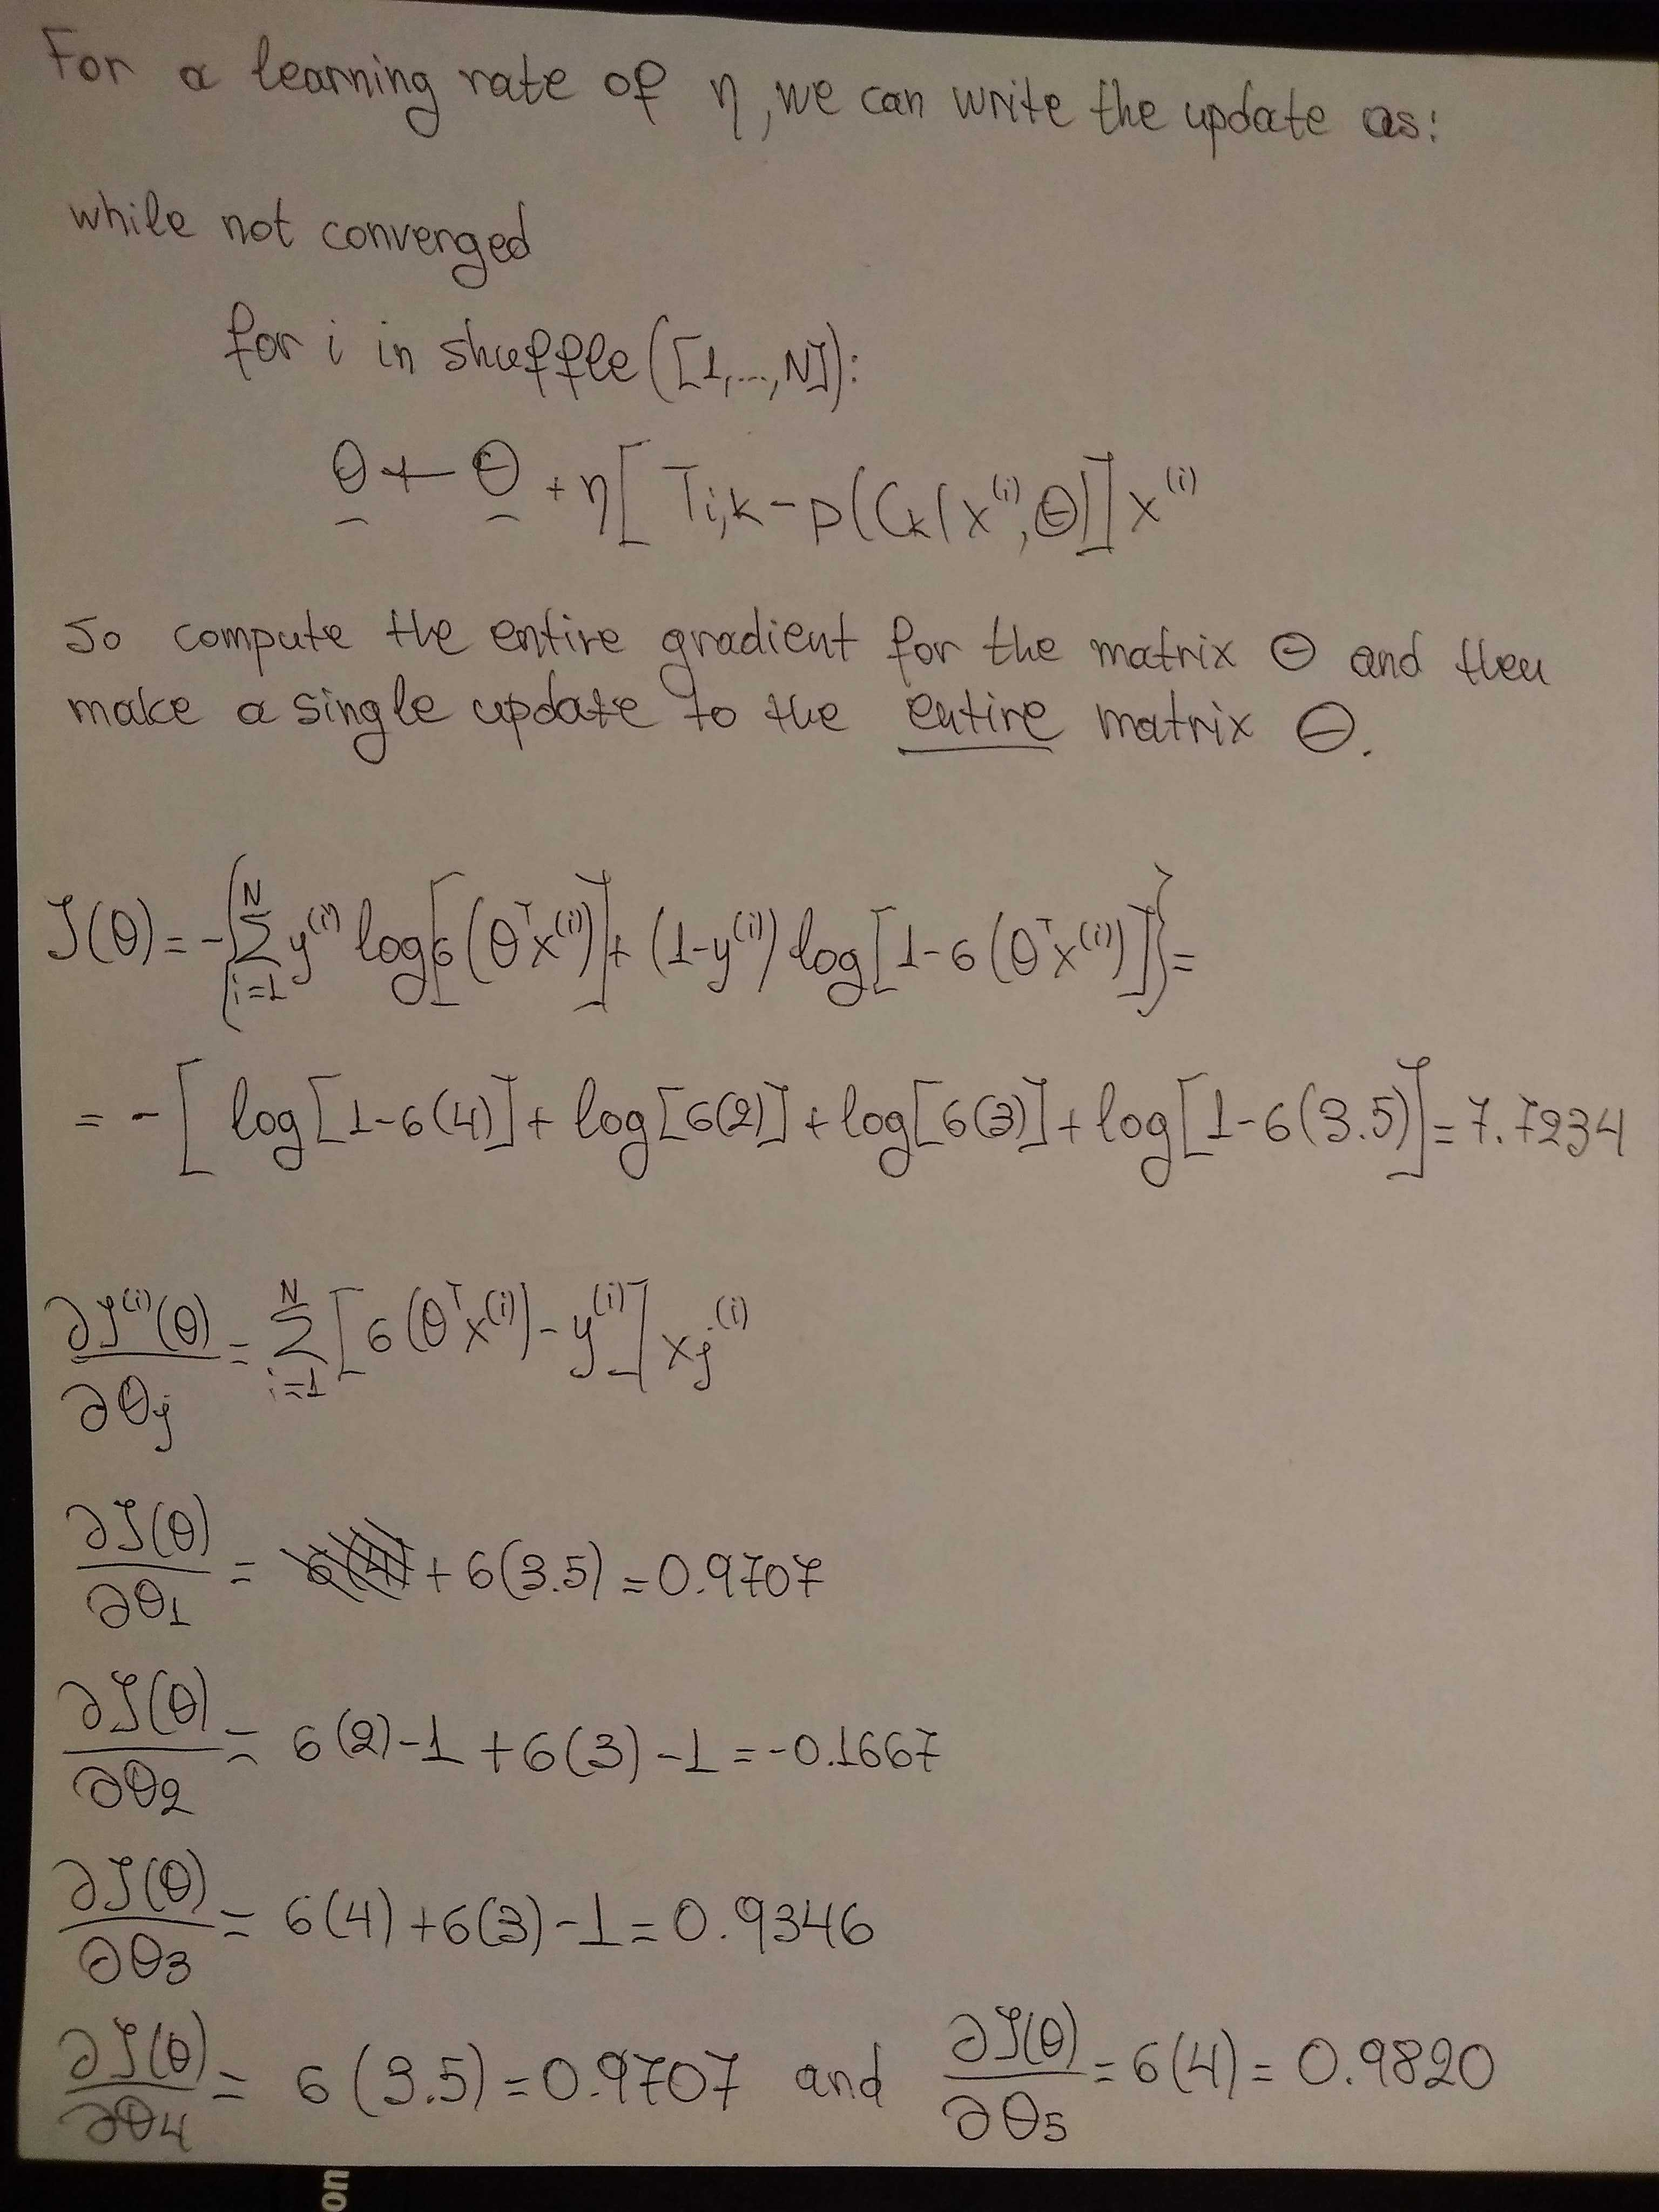 For a learning rate of η, we can write the update as:
while not converged
for i in shuffle([1,...,N]):
θ ← Θ + η[Ti,k - p(Ck|x⁽ⁱ⁾,Θ)]x⁽ⁱ⁾
So compute the entire gradient for the matrix Θ and then
make a single update to the entire matrix Θ.
J(θ) = -{∑_{i=1}^{N} y⁽ⁱ⁾ log[σ(θᵀx⁽ⁱ⁾)] + (1-y⁽ⁱ⁾) log[1-σ(θᵀx⁽ⁱ⁾)]} =
= -[log[1-σ(4)] + log[σ(2)] + log[σ(3)] + log[1-σ(3.5)] = 7.7234
∂J⁽ⁱ⁾(θ)/∂θj = ∑_{i=1}^{N} [σ(θᵀx⁽ⁱ⁾) - y⁽ⁱ⁾] xj⁽ⁱ⁾
∂J(θ)/∂θ1 = + σ(3.5) = 0.9707
∂J(θ)/∂θ2 = σ(2) - 1 + σ(3) - 1 = -0.1667
∂J(θ)/∂θ3 = σ(4) + σ(3) - 1 = 0.9346
∂J(θ)/∂θ4 = σ(3.5) = 0.9707 and ∂J(θ)/∂θ5 = σ(4) = 0.9820
on